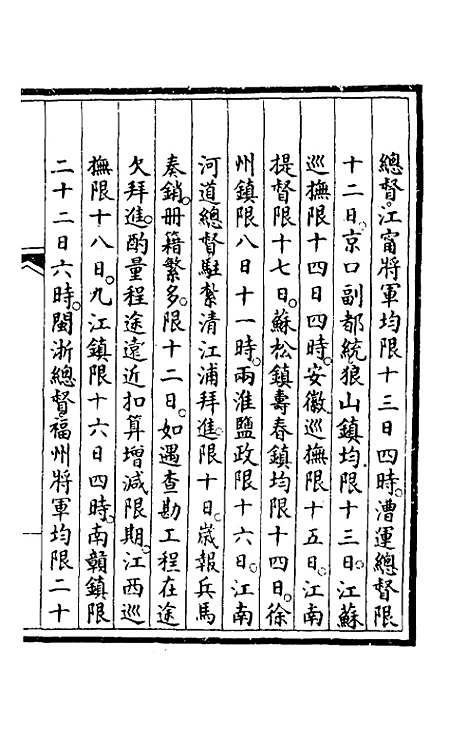 總督。江甯將軍均限十三日四時。漕運總督限
十二日。京口副都統。狼山鎮均限十三日。江蘇
巡撫限十四日四時。安徽巡撫限十五日。江南
提督限十七日。蘇松鎮壽春鎮均限十四日。徐
州鎮限八日十一時。兩淮鹽政限十六日。江南
河道總督駐紮清江浦拜進。限十日。歲報兵馬
奏銷。冊籍繁多。限十二日。如遇查勘工程在途
次拜進。酌量程途遠近扣算增減限期。江西巡
撫限十八日。九江鎮限十六日四時。南贛鎮限
二十二日六時。閩浙總督。福州將軍均限二十